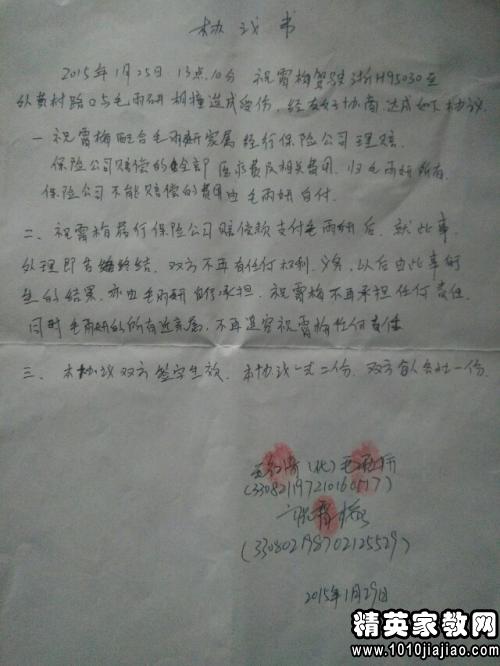 协议书
2015年1月25日13点10分 祝霄梅驾驶浙H95030至
黄村路口与毛雨研相撞造成受伤,经友好协商达成如下协议
一 祝霄梅配合毛雨研家属经行保险公司理赔.
保险公司赔偿的全部医疗费及相关费用.归毛雨研所有.
保险公司不能赔偿的费用由毛雨研自付.
二、祝霄梅将行保险公司赔偿款支付毛雨研后.就此事
处理即告终结.双方不再有任何权利.义务,以后由此事
的结果.亦由毛雨研自行承担.祝霄梅不再承担任何责任.
同时毛雨研的所有近亲属,不再追究祝霄梅任何责任
三.本协议双方签字生效.本协议一式二份.双方各一份.
(代)毛雨研
祝霄梅
(330802198702125529)
2015年1月29日
精英家教网
www.1010jiajiao.com